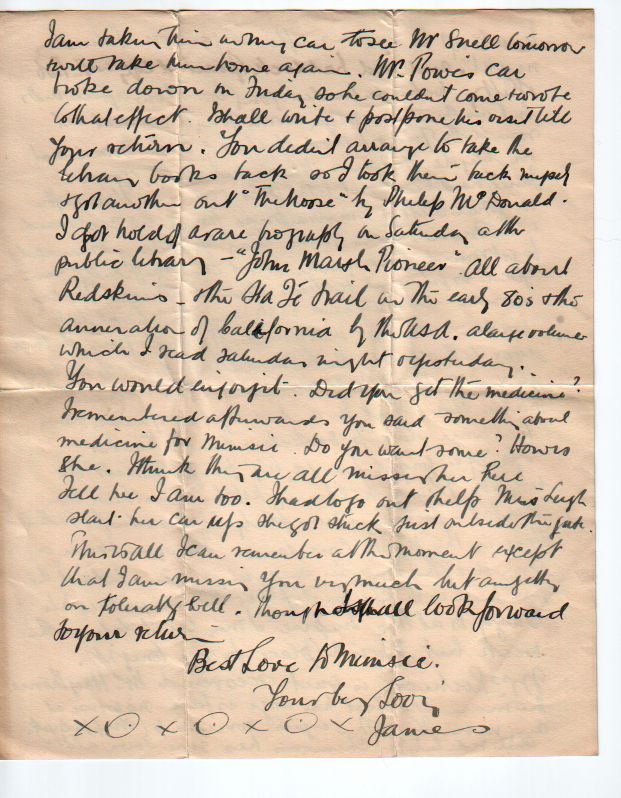 I am taking him in my car to see Mr Snell tomorrow
& will take him home again. Mr. Powis car
broke down on Friday so he couldn't come & wrote
to that effect. I shall write & postpone his visit till
your return. You didn't arrange to take the
library books back so I took them back myself
& got another out "The Noose" by Philip McDonald.
I got hold of a rare biography on Saturday at the
public library – "John Marsh Pioneer" all about
Redskins – & the Sta Fé trail in the early 80s & the
annexation of California by the USA. a large volume
which I read Saturday night & yesterday.
You would enjoy it. Did you get the medicine?
I remembered afterwards you said something about
medicine for Mumsie. Do you want some? How is
she. I think they are all missing her here
Tell her I am too. I had to go out & help Miss Leigh
start her car up she got stuck just outside the gate.
This is all I can remember at the moment except
that I am missing you very much but am getting
on tolerably well. Though shall look forward
to your return
Best Love to Mumsie.
Your lovin
x O x O x O x James